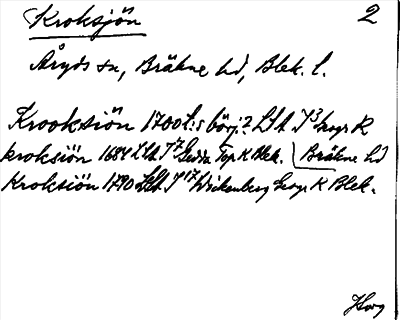 Kroksjön 2
Åryds sn, Bräkne hd, Blek. l.
Krooksiön 1700 t:s börj:? LSA I 3 Geogr K
kroksiön 1684 LSA I 7 Gedda Top K Blek. Bräkne hd
Kroksiön 1790 LSA I 17 Wickenberg Geogr K Blek.